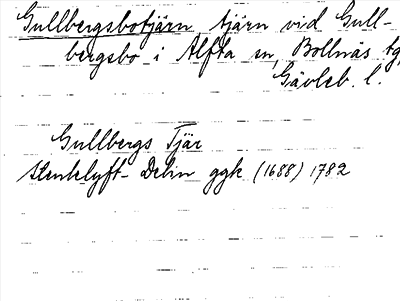 Gullbergsbotjärn tjärn vid Gull-
bergsbo i Alfta sn, Bollnäs tg,
Gävleb. l.
Gullbergs Tjär
ggk (1688) 1782